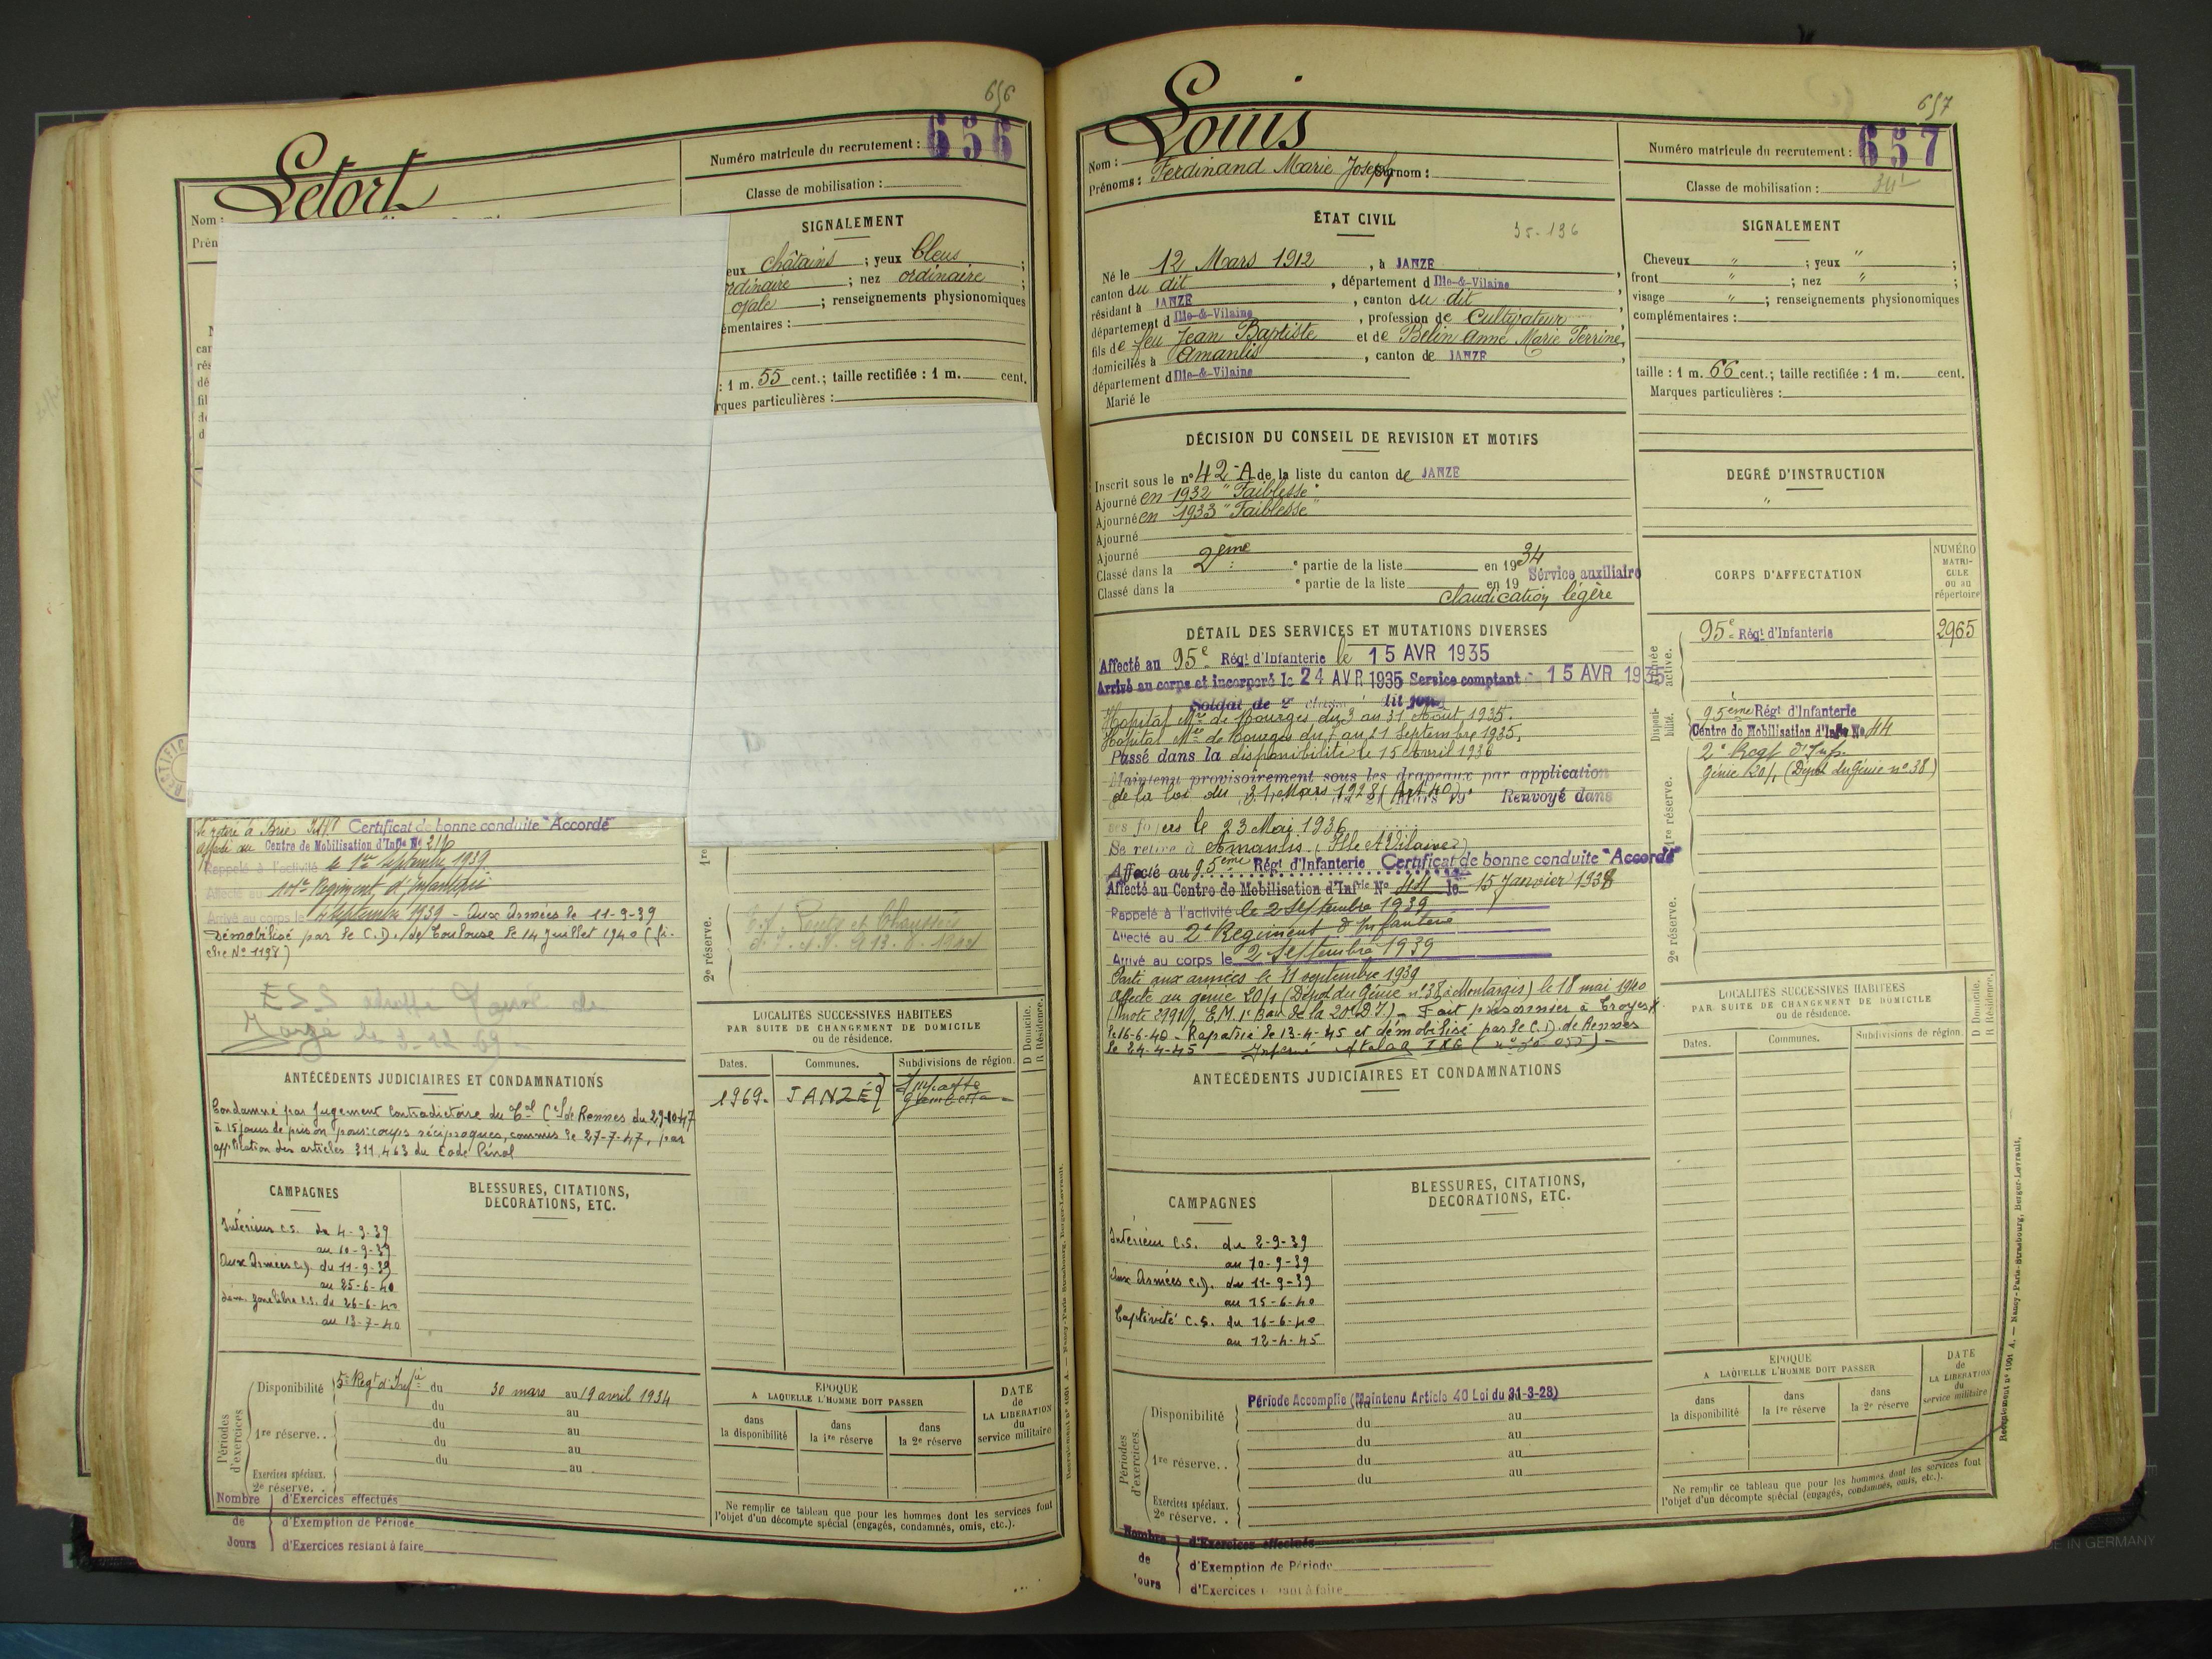 656
Letort
Numéro matricule du recrutement : 656
Classe de mobilisation :
Nom :
Prén
SIGNALEMENT
eux châtains ; yeux bleus ;
ordinaire ; nez ordinaire ;
ovale ; renseignements physionomiques
émentaires :
: 1 m. 55 cent.; taille rectifiée : 1 m. cent.
rques particulières :
Se retire à Brie I&V Certificat de bonne conduite "Accordé"
Affecté au Centre de Mobilisation d'Infie No 216
Rappelé à l'activité le 1er Septembre 1939
Affecté au Régiment d'Infanterie
Arrivé au corps le 4 Septembre 1939 - Aux Armées le 11-9-39
Démobilisé par le C.D. de Toulouse le 14 Juillet 1940 (fi-
che No 1198)
1re
2e réserve.
ANTÉCÉDENTS JUDICIAIRES ET CONDAMNATIONS
Condamné par Jugement Contradictoire du Tal Cel de Rennes du 29-10-47
à 15 jours de prison pour: coups réciproques, commis le 27-7-47, par
application des articles 311, 463 du Code Pénal
LOCALITÉS SUCCESSIVES HABITÉES
PAR SUITE DE CHANGEMENT DE DOMICILE
ou de résidence.
D Domicile.
R Résidence.
Dates. Communes. Subdivisions de région.
1969. JANZÉ
CAMPAGNES
Intérieur C.S. du 4-9-39
au 10-9-39
Aux Armées C.D. du 11-9-39
au 25-6-40
zone libre C.S. du 26-6-40
au 13-7-40
BLESSURES, CITATIONS,
DÉCORATIONS, ETC.
Périodes d'exercices
Disponibilité 5e Régt d'Infie du 30 mars au 19 avril 1934
du au
1re réserve. . du au
du au
du au
Exercices spéciaux.
2e réserve. .
Nombre de Jours
d'Exercices effectués
d'Exemption de Période
d'Exercices restant à faire
ÉPOQUE
A LAQUELLE L'HOMME DOIT PASSER
dans la disponibilité
dans la 1re réserve
dans la 2e réserve
DATE de LA LIBÉRATION du service militaire
Ne remplir ce tableau que pour les hommes dont les services font
l'objet d'un décompte spécial (engagés, condamnés, omis, etc.).
657
Nom : Louis
Prénoms : Ferdinand Marie Joseph Surnom :
Numéro matricule du recrutement : 657
Classe de mobilisation :
ÉTAT CIVIL
35-136
Né le 12 Mars 1912, à JANZE
canton du dit, département d Ille-&-Vilaine
résidant à JANZE, canton du dit
département d Ille-&-Vilaine, profession de Cultivateur
fils de feu Jean Baptiste et de Belin Anne Marie Perrine,
domiciliés à Amanlis, canton de JANZE
département d Ille-&-Vilaine
Marié le
SIGNALEMENT
Cheveux " ; yeux " ;
front " ; nez " ;
visage " ; renseignements physionomiques
complémentaires :
taille : 1 m. 66 cent.; taille rectifiée : 1 m. cent.
Marques particulières :
DÉCISION DU CONSEIL DE REVISION ET MOTIFS
Inscrit sous le no 42-A de la liste du canton de JANZE
Ajourné en 1932 "Faiblesse"
Ajourné en 1933 "Faiblesse"
Ajourné
Ajourné
Classé dans la 2ème e partie de la liste en 1934
Classé dans la e partie de la liste en 19 Service auxiliaire
Claudication légère
DEGRÉ D'INSTRUCTION
"
CORPS D'AFFECTATION
NUMÉRO MATRICULE ou au répertoire
Armée active.
95e Régt d'Infanterie 2965
Disponibilité.
95ème Régt d'Infanterie
Centre de Mobilisation d'Infie No 44
1re réserve.
2e Régt d'Inf.
Génie 20/1 (Dépôt du Génie no 38)
2e réserve.
DÉTAIL DES SERVICES ET MUTATIONS DIVERSES
Affecté au 95e Régt d'Infanterie le 15 AVR 1935
Arrivé au corps et incorporé le 24 AVR 1935 Service comptant 15 AVR 1935
Soldat de 2e classe dit jour
Hopital Mre de Bourges du 3 au 31 Août 1935.
Hopital Mre de Bourges du 7 au 21 Septembre 1935.
Passé dans la disponibilité le 15 Avril 1936
Maintenu provisoirement sous les drapeaux par application
de la loi du 31 Mars 1928 (Art 40) Renvoyé dans
ses foyers le 23 Mai 1936
Se retire à Amanlis (Ille & Vilaine)
Affecté au 95ème Régt d'Infanterie Certificat de bonne conduite "Accordé"
Affecté au Centre de Mobilisation d'Infrie No 44 le 15 Janvier 1938
Rappelé à l'activité le 2 Septembre 1939
Affecté au 2e Régiment d'Infanterie
Arrivé au corps le 2 Septembre 1939
Parti aux armées le 11 septembre 1939
Affecté au génie 20/1 (Dépôt du Génie no 38 à Montargis) le 18 mai 1940
E.M. 1r Bau de la 20e D.I.) - Fait prisonnier à Troyes
le 16-6-40 - Rapatrié le 13-4-45 et démobilisé par le C.D. de Rennes
le 24-4-45 - Interné Stalag
ANTÉCÉDENTS JUDICIAIRES ET CONDAMNATIONS
LOCALITÉS SUCCESSIVES HABITÉES
PAR SUITE DE CHANGEMENT DE DOMICILE
ou de résidence.
D Domicile.
R Résidence.
Dates. Communes. Subdivisions de région.
CAMPAGNES
Intérieur C.S. du 2-9-39
au 10-9-39
Aux Armées C.D. du 11-9-39
au 15-6-40
Captivité C.S. du 16-6-40
au 12-4-45
BLESSURES, CITATIONS,
DÉCORATIONS, ETC.
Périodes d'exercices
Période Accomplie (Maintenu Article 40 Loi du 31-3-28)
Disponibilité du au
du au
1re réserve. . du au
du au
Exercices spéciaux.
2e réserve. .
Nombre de Jours
d'Exercices effectués
d'Exemption de Période
d'Exercices restant à faire
ÉPOQUE
A LAQUELLE L'HOMME DOIT PASSER
dans la disponibilité
dans la 1re réserve
dans la 2e réserve
DATE de LA LIBÉRATION du service militaire
Ne remplir ce tableau que pour les hommes dont les services font
l'objet d'un décompte spécial (engagés, condamnés, omis, etc.).
Recrutement No 1091 A. — Nancy-Paris-Strasbourg, Berger-Levrault.
E IN GERMANY